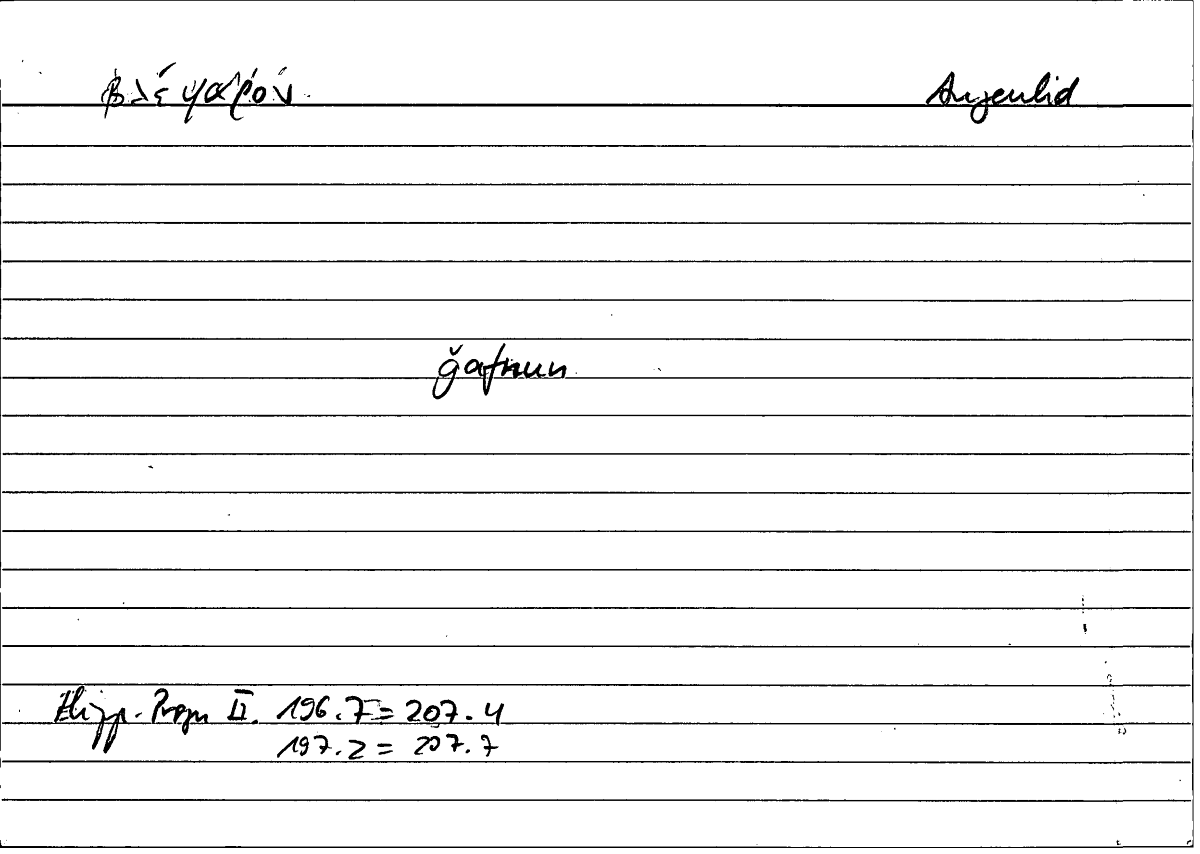 βλέφαρόν Augenlid
ğafnun
Hipp. Progn II. 196.7 = 207.4
197.2 = 207.7